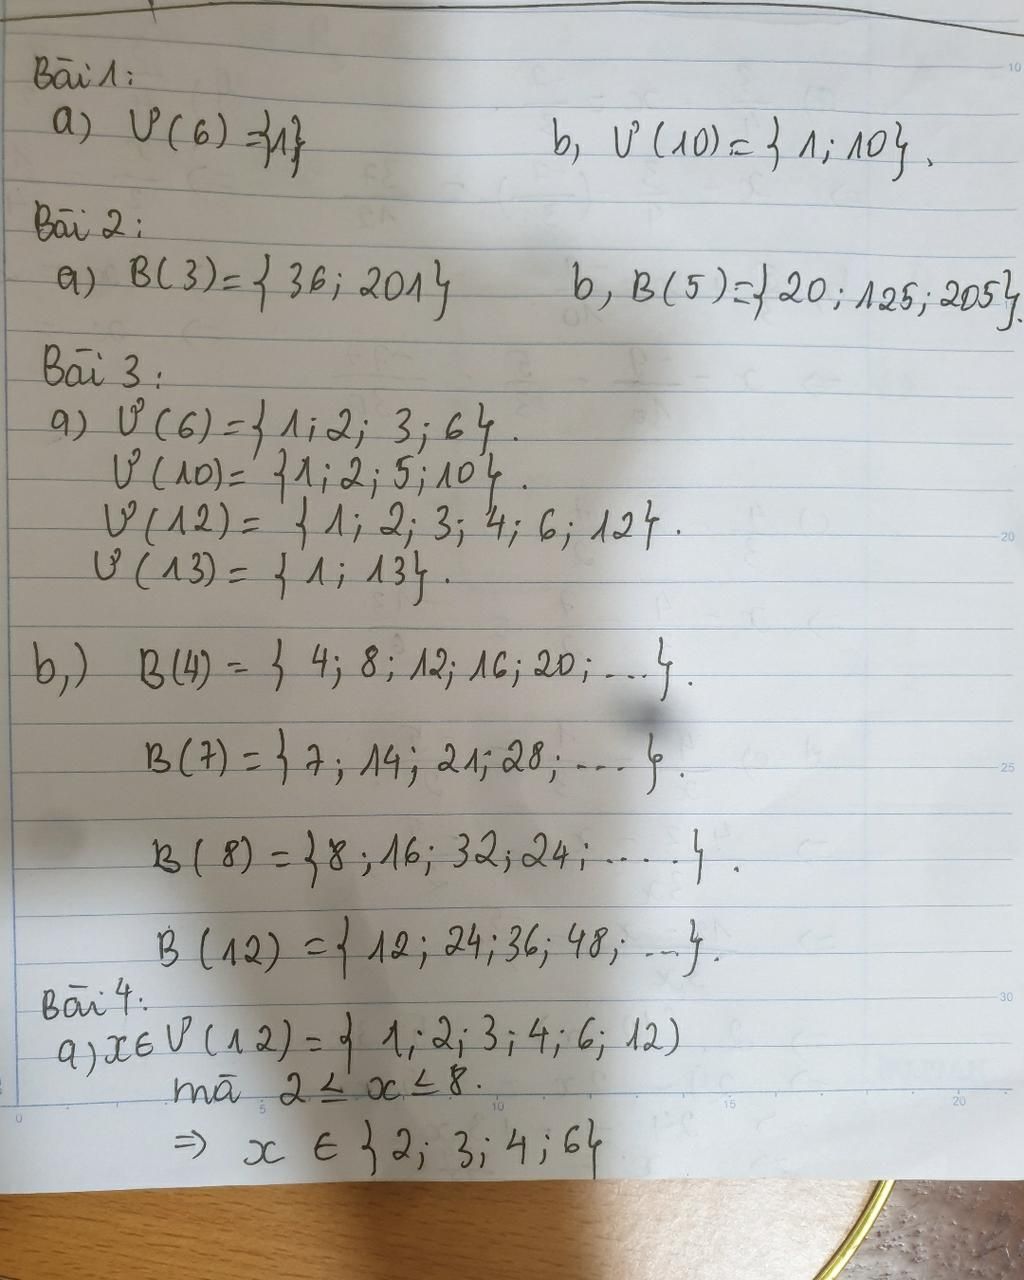 Bài 1:
a) Ư(6) = {1}    b, Ư(10) = { 1; 10}.
Bài 2:
a) B(3) = { 36; 201}    b, B(5) = { 20; 125; 205}.
Bài 3:
a) Ư(6) = { 1; 2; 3; 6}.
Ư(10) = {1; 2; 5; 10}.
Ư(12) = { 1; 2; 3; 4; 6; 12}.
Ư(13) = { 1; 13}.
b,) B(4) = { 4; 8; 12; 16; 20; ...}.
B(7) = { 7; 14; 21; 28; .... }.
B(8) = { 8; 16; 32; 24; ..... }.
B(12) = { 12; 24; 36; 48; ...}.
Bài 4:
a) x ∈ Ư(12) = { 1; 2; 3; 4; 6; 12)
mà 2 ≤ x ≤ 8.
=> x ∈ { 2; 3; 4; 6}
10
20
25
30
0 5 10 15 20